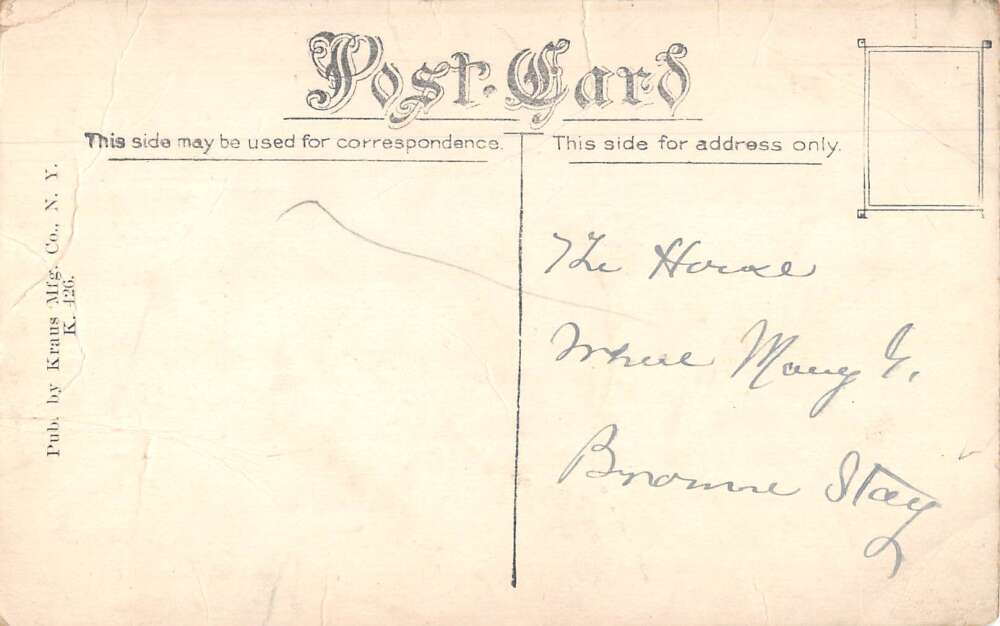 Post Card
This side may be used for correspondence.
This side for address only.
Pub. by Kraus Mfg. Co., N. Y.
K. 426.
The House
Where Mary G.
Browne Stay